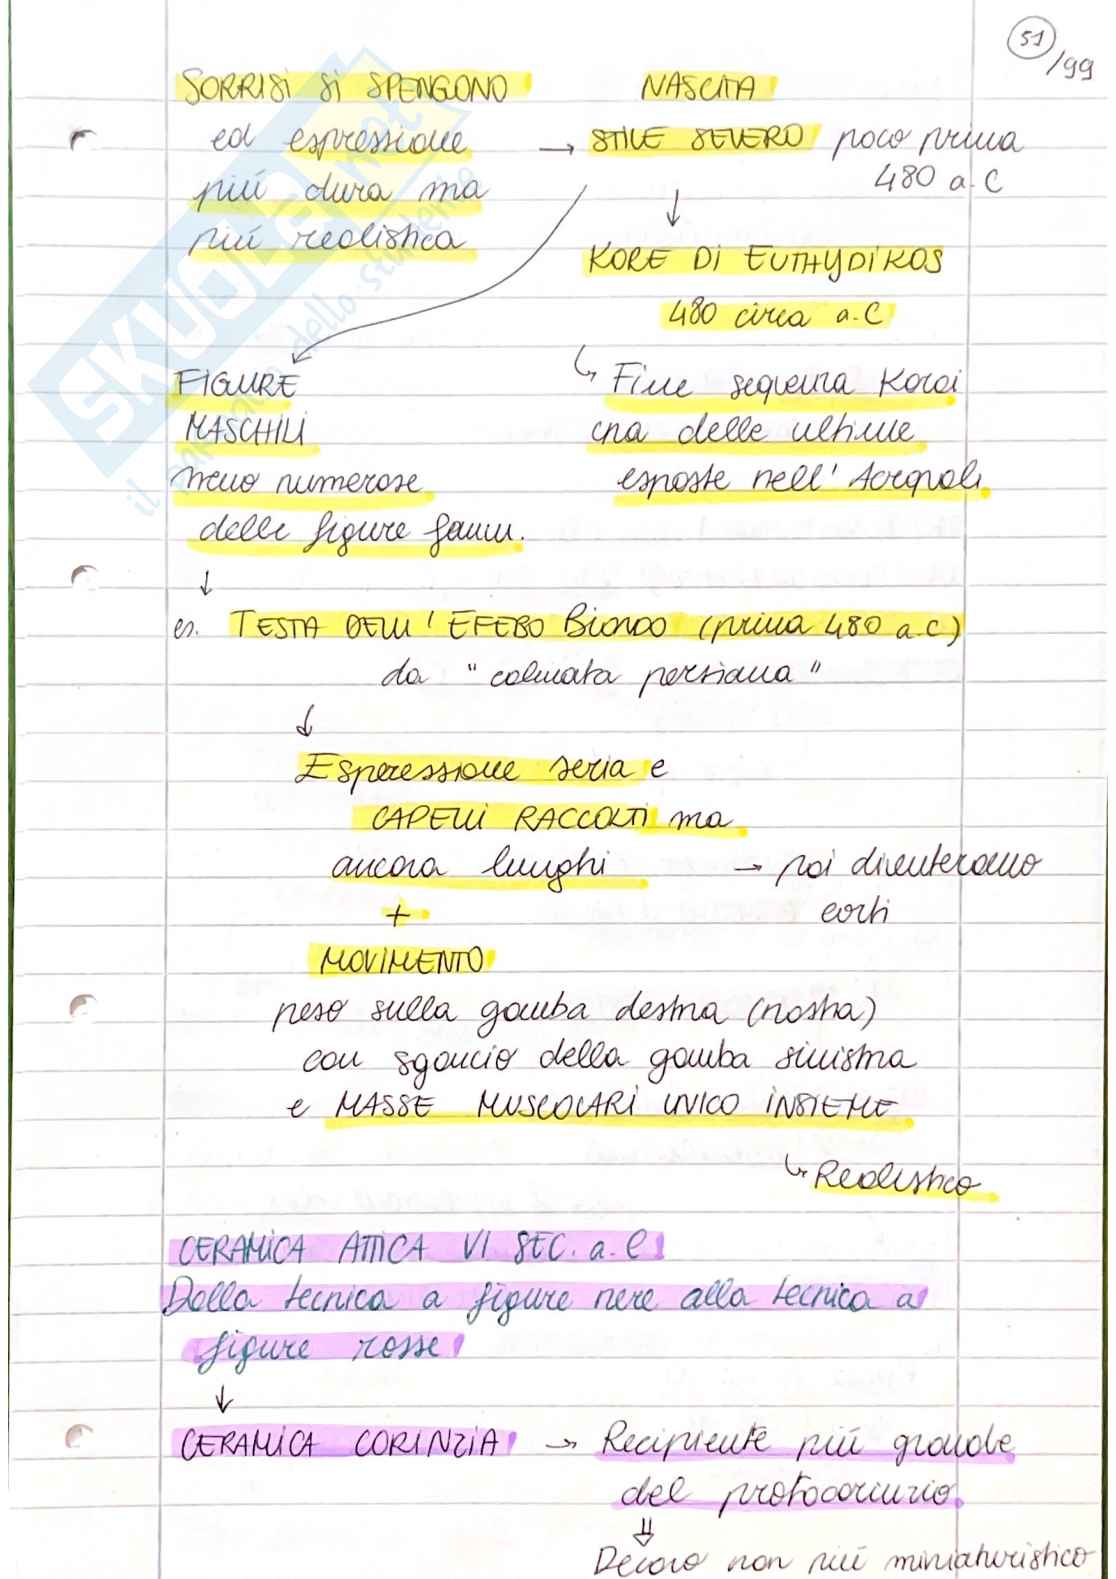 51/99
SORRISI SI SPENGONO
ed espressione
più dura ma
più realistica
→ NASCITA
STILE SEVERO poco prima
480 a.C
↓
KORE DI EUTHYDIKOS
480 circa a.C
↳ Fine sequenza Koroi
una delle ultime
esposte nell' Acropoli
FIGURE
MASCHILI
meno numerose
delle figure femm.
↓
es. TESTA DELL' EFEBO BIONDO (prima 480 a.C)
da "colmata persiana"
↓
Esperessione seria e
CAPELLI RACCOLTI ma
ancora lunghi → poi diventeranno
corti
+
MOVIMENTO
peso sulla gamba destra (nostra)
con sgancio della gamba sinistra
e MASSE MUSCOLARI UNICO INSIEME
↳ Realistico
CERAMICA ATTICA VI SEC. a.C
Dalla tecnica a figure nere alla tecnica a
figure rosse
↓
CERAMICA CORINZIA → Recipiente più grande
del protocorinzio
⇓
Decoro non più miniaturistico
SKUOLA.net
il paradiso dello studente